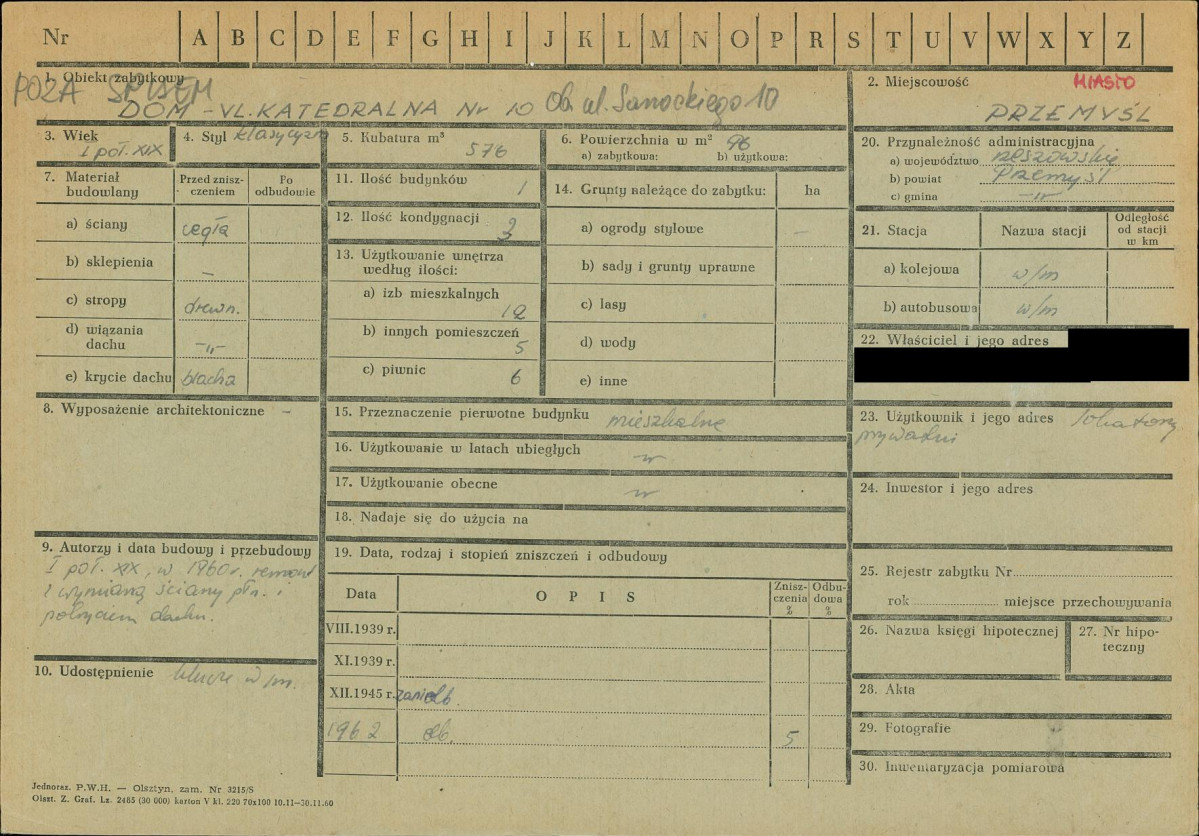 Nr A B C D E F G H I J K L M N O P R S T U V W X Y Z
1. Obiekt zabytkowy
POZA SPISEM
DOM - UL. KATEDRALNA Nr 10 Ob. ul. Sanockiego 10
2. Miejscowość MIASTO
PRZEMYŚL
3. Wiek
I poł. XIX
4. Styl klasycyzm
5. Kubatura m³
576
6. Powierzchnia w m² 96
a) zabytkowa: b) użytkowa:
20. Przynależność administracyjna
a) województwo rzeszowskie
b) powiat Przemyśl
c) gmina -"-
7. Materiał budowlany
Przed zniszczeniem
Po odbudowie
a) ściany cegła
b) sklepienia -
c) stropy drewn.
d) wiązania
dachu -"-
e) krycie dachu blacha
11. Ilość budynków 1
12. Ilość kondygnacji 3
13. Użytkowanie wnętrza
według ilości:
a) izb mieszkalnych
12
b) innych pomieszczeń
5
c) piwnic 6
14. Grunty należące do zabytku: ha
a) ogrody stylowe -
b) sady i grunty uprawne
c) lasy
d) wody
e) inne
21. Stacja Nazwa stacji
Odległość
od stacji
w km
a) kolejowa w/m
b) autobusowa w/m
22. Właściciel i jego adres
8. Wyposażenie architektoniczne -
15. Przeznaczenie pierwotne budynku mieszkalne
16. Użytkowanie w latach ubiegłych -"-
17. Użytkowanie obecne -"-
18. Nadaje się do użycia na
23. Użytkownik i jego adres lokatorzy
prywatni
24. Inwestor i jego adres
9. Autorzy i data budowy i przebudowy
I poł. XIX, w 1960 r. remont
z wymianą ściany płn. i
pokryciem dachu.
19. Data, rodzaj i stopień zniszczeń i odbudowy
Data OPIS
Zniszczenia
%
Odbudowa
%
VIII.1939 r.
XI.1939 r.
XII.1945 r. zaniedb.
1962 db. 5
25. Rejestr zabytku Nr
rok miejsce przechowywania
26. Nazwa księgi hipotecznej
27. Nr hipoteczny
28. Akta
29. Fotografie
30. Inwentaryzacja pomiarowa
10. Udostępnienie klucze w/m.
Jednoraz. P.W.H. — Olsztyn, zam. Nr 3215/S
Olszt. Z. Graf. Lz. 2485 (30 000) karton V kl. 220 70x100 10.11—30.11.60